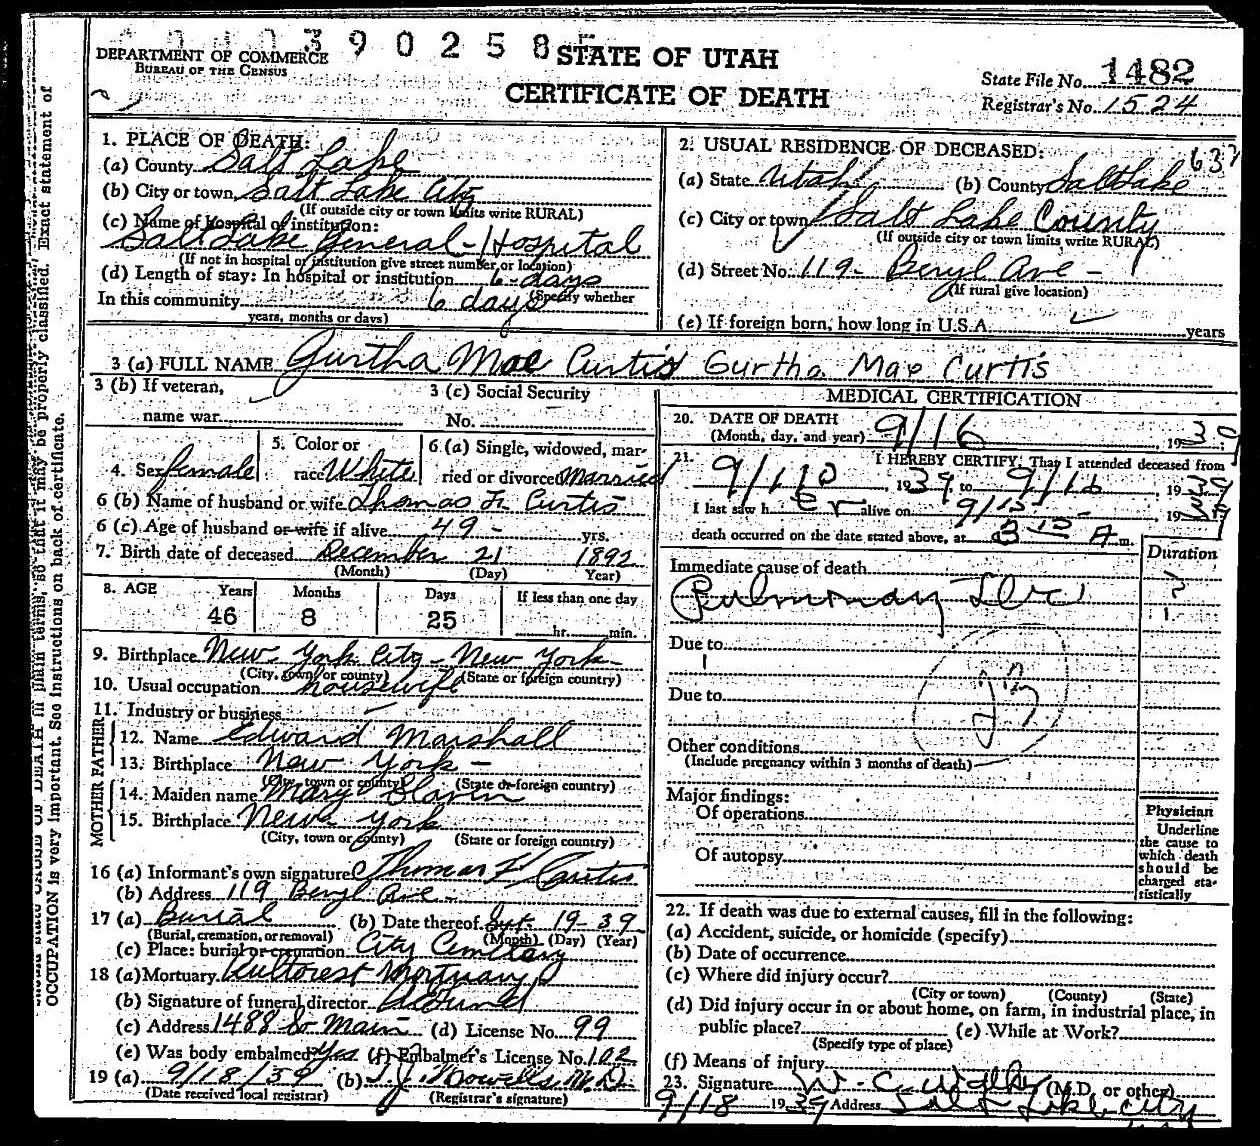 390258
DEPARTMENT OF COMMERCE
BUREAU OF THE CENSUS
STATE OF UTAH
CERTIFICATE OF DEATH
State File No. 1482
Registrar's No. 1524
1. PLACE OF DEATH:
(a) County Salt Lake
(b) City or town Salt Lake City
(If outside city or town limits write RURAL)
(c) Name of hospital or institution:
Salt Lake General Hospital
(If not in hospital or institution give street number or location)
(d) Length of stay: In hospital or institution 6 days
(Specify whether
In this community 6 days
years, months or days)
2. USUAL RESIDENCE OF DECEASED:
(a) State Utah (b) County Salt Lake
(c) City or town Salt Lake County
(If outside city or town limits write RURAL)
(d) Street No. 119 - Beryl Ave -
(If rural give location)
(e) If foreign born, how long in U.S.A. years
3 (a) FULL NAME Gurtha Mae Curtis Gurtha Mae Curtis
3 (b) If veteran,
name war
3 (c) Social Security
No.
4. Sex female
5. Color or
race White
6 (a) Single, widowed, mar-
ried or divorced Married
6 (b) Name of husband or wife Thomas F. Curtis
6 (c) Age of husband or wife if alive 49 - yrs.
7. Birth date of deceased December 21 1892
(Month) (Day) (Year)
8. AGE Years Months Days If less than one day
46 8 25 hr. min.
9. Birthplace New York City - New York -
(City, town or county) (State or foreign country)
10. Usual occupation housewife
11. Industry or business
FATHER
12. Name Edward Marshall
13. Birthplace New York -
(City, town or county) (State or foreign country)
MOTHER
14. Maiden name Mary
15. Birthplace New York
(City, town or county) (State or foreign country)
16 (a) Informant's own signature Thomas F Curtis
(b) Address 119 Beryl Ave -
17 (a) Burial (b) Date thereof Sept. 19-39
(Burial, cremation, or removal) (Month) (Day) (Year)
(c) Place: burial or cremation City Cemetary
18 (a) Mortuary Mortuary
(b) Signature of funeral director
(c) Address 1488 So Main (d) License No. 99
(e) Was body embalmed? Yes (f) Embalmer's License No. 102
19 (a) 9/18/39 (b) M.D.
(Date received local registrar) (Registrar's signature)
MEDICAL CERTIFICATION
20. DATE OF DEATH
(Month, day, and year) 9/16, 1939
21. I HEREBY CERTIFY: That I attended deceased from
9/10, 1939 to 9/16, 1939
I last saw her alive on 9/15, 1939
death occurred on the date stated above, at 8 15 A m.
Immediate cause of death Duration
Pulmonary
Due to
Due to
Other conditions
(Include pregnancy within 3 months of death)
Major findings:
Of operations
Of autopsy
Physician
Underline
the cause to
which death
should be
charged sta-
tistically
22. If death was due to external causes, fill in the following:
(a) Accident, suicide, or homicide (specify)
(b) Date of occurrence
(c) Where did injury occur?
(City or town) (County) (State)
(d) Did injury occur in or about home, on farm, in industrial place, in
public place? (e) While at Work?
(Specify type of place)
(f) Means of injury
23. Signature W. C. (M.D. or other)
9/18 1939 Address Salt Lake City
OCCUPATION is very important. See Instructions on back of certificate.
DEATH in plain terms, so that it may be properly classified. Exact statement of